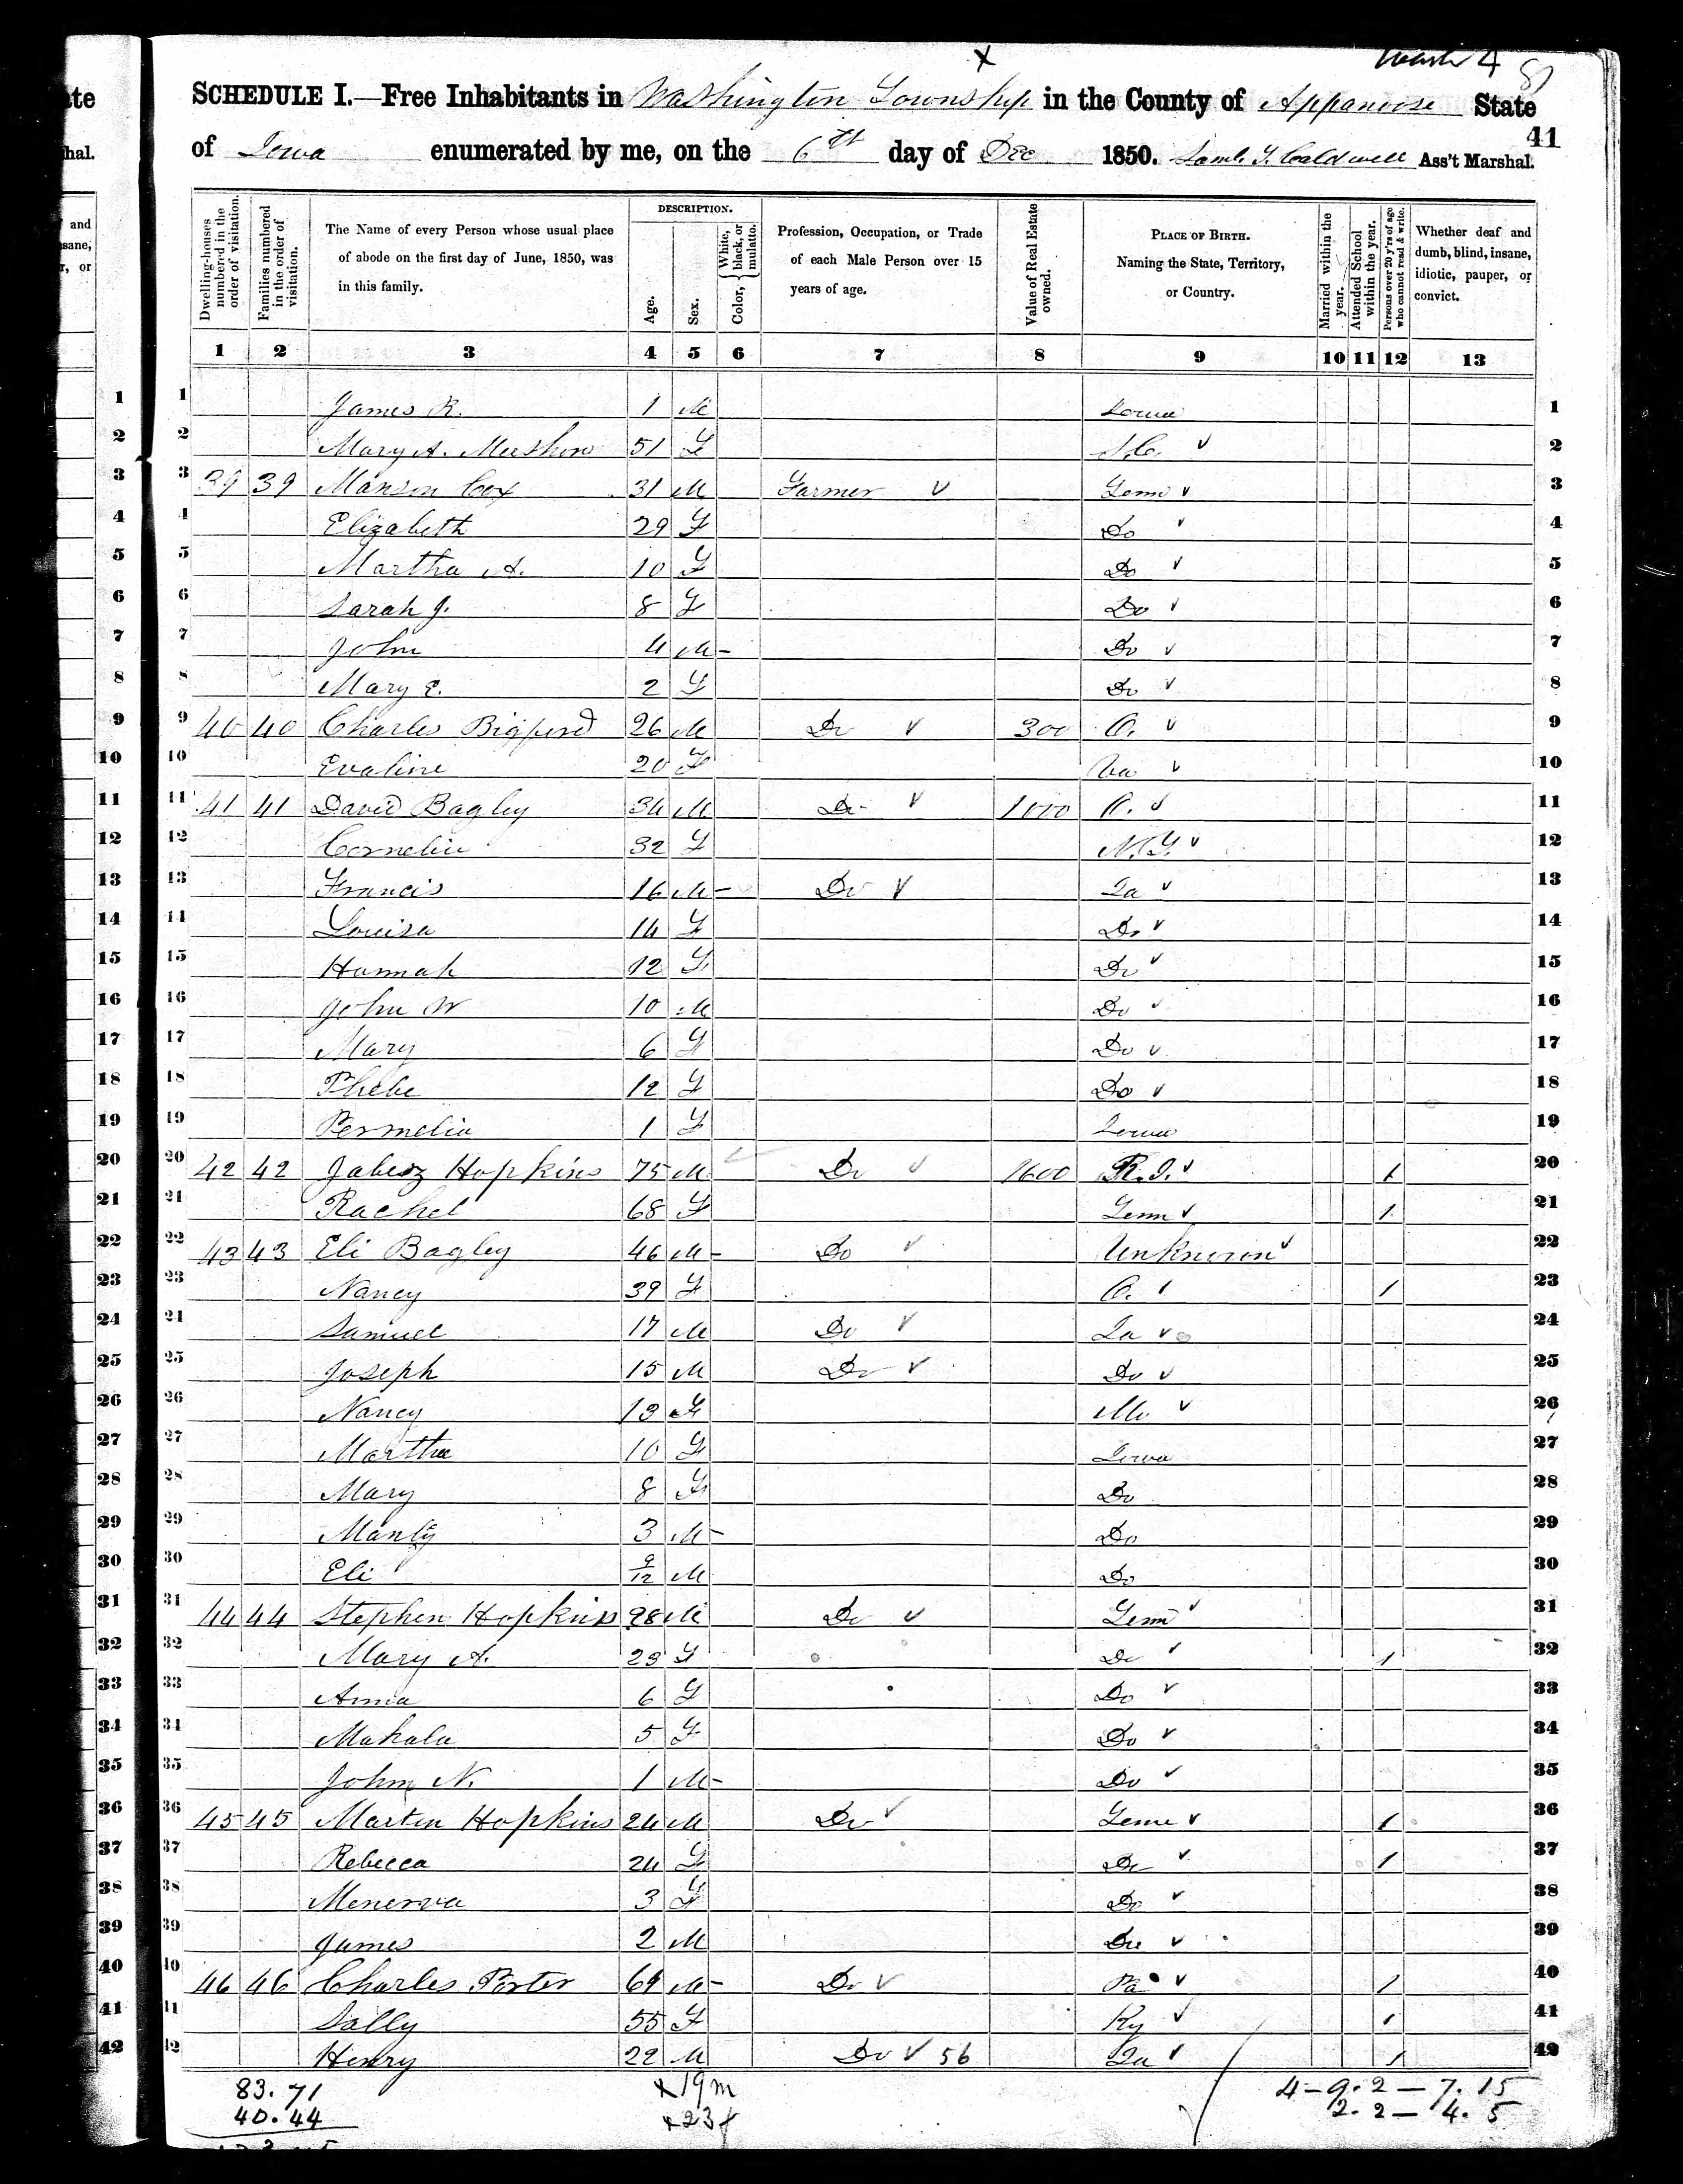 Wash 4
81
SCHEDULE I.—Free Inhabitants in Washington Township in the County of Appanoose State
41
of Iowa enumerated by me, on the 6th day of Dec 1850. Saml. T. Caldwell Ass't Marshal.
Dwelling-houses numbered in the order of visitation.
Families numbered in the order of visitation.
The Name of every Person whose usual place of abode on the first day of June, 1850, was in this family.
DESCRIPTION.
Age.
Sex.
Color, White, black, or mulatto.
Profession, Occupation, or Trade of each Male Person over 15 years of age.
Value of Real Estate owned.
PLACE OF BIRTH. Naming the State, Territory, or Country.
Married within the year.
Attended School within the year.
Persons over 20 y'rs of age who cannot read & write.
Whether deaf and dumb, blind, insane, idiotic, pauper, or convict.
1 2 3 4 5 6 7 8 9 10 11 12 13
1 James R. 1 M Iowa 1
2 Mary A. 51 F 2
3 39 39 Manson Cox 31 M Farmer Tenn 3
4 Elizabeth 29 F Do 4
5 Martha A. 10 F Do 5
6 Sarah J. 8 F Do 6
7 John 4 M Do 7
8 Mary E. 2 F Do 8
9 40 40 Charles Bigford 26 M Do 300 O. 9
10 Evaline 20 F Va 10
11 41 41 David Bagley 34 M Do 1000 O. 11
12 Cornelia 32 F N.Y. 12
13 Francis 16 M Do Ia 13
14 Louisa 14 F Do 14
15 Hannah 12 F Do 15
16 John W 10 M Do 16
17 Mary 6 F Do 17
18 Phebe 12 F Do 18
19 Permelia 1 F Iowa 19
20 42 42 Jabez Hopkins 75 M Do 1600 R.I. 1 20
21 Rachel 68 F Tenn 1 21
22 43 43 Eli Bagley 46 M Do Unknown 22
23 Nancy 39 F O. 1 23
24 Samuel 17 M Do Ia 24
25 Joseph 15 M Do Do 25
26 Nancy 13 F Mo 26
27 Martha 10 F Iowa 27
28 Mary 8 F Do 28
29 Manly 3 M Do 29
30 Eli 9/12 M Do 30
31 44 44 Stephen Hopkins 28 M Do Tenn 31
32 Mary A. 23 F Do 1 32
33 Anna 6 F Do 33
34 Mahala 5 F Do 34
35 John N. 1 M Do 35
36 45 45 Martin Hopkins 24 M Do Tenn 1 36
37 Rebecca 24 F Do 1 37
38 Menerva 3 F Do 38
39 James 2 M Do 39
40 46 46 Charles Porter 69 M Do Pa 1 40
41 Sally 55 F Ky 1 41
42 Henry 22 M Do 56 Ia 1 42
83.71
40.44
x 19 m
x 23 f
4-9.2-7.15
2.2-4.5